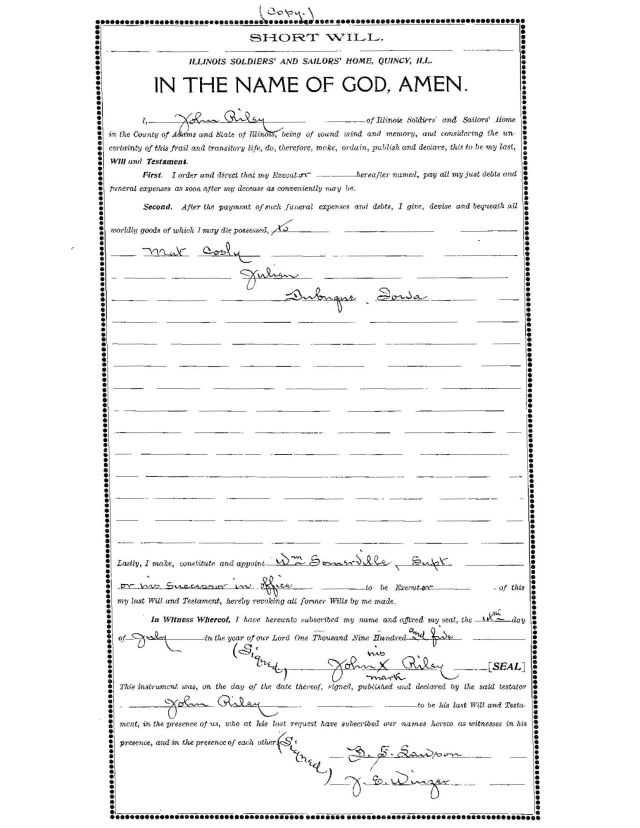 (Copy.)
SHORT WILL.
ILLINOIS SOLDIERS' AND SAILORS' HOME, QUINCY, ILL.
IN THE NAME OF GOD, AMEN.
I, John Riley of Illinois Soldiers' and Sailors' Home
in the County of Adams and State of Illinois, being of sound mind and memory, and considering the un-
certainty of this frail and transitory life, do, therefore, make, ordain, publish and declare, this to be my last,
Will and Testament.
First. I order and direct that my Executor hereafter named, pay all my just debts and
funeral expenses as soon after my decease as conveniently may be.
Second. After the payment of such funeral expenses and debts, I give, devise and bequeath all
worldly goods of which I may die possessed, to
Mat Cosly
Julien
Dubuque, Iowa
Lastly, I make, constitute and appoint Wm Somerville, Supt.
or his Successor in office to be Executor of this
my last Will and Testament, hereby revoking all former Wills by me made.
In Witness Whereof, I have hereunto subscribed my name and affixed my seal, the day
of July in the year of our Lord One Thousand Nine Hundred and five
(Signed) his
John X Riley [SEAL]
mark
This instrument was, on the day of the date thereof, signed, published and declared by the said testator
John Riley to be his last Will and Testa-
ment, in the presence of us, who at his last request have subscribed our names hereto as witnesses in his
presence, and in the presence of each other (Signed)
Lawson
J. E. Winzer